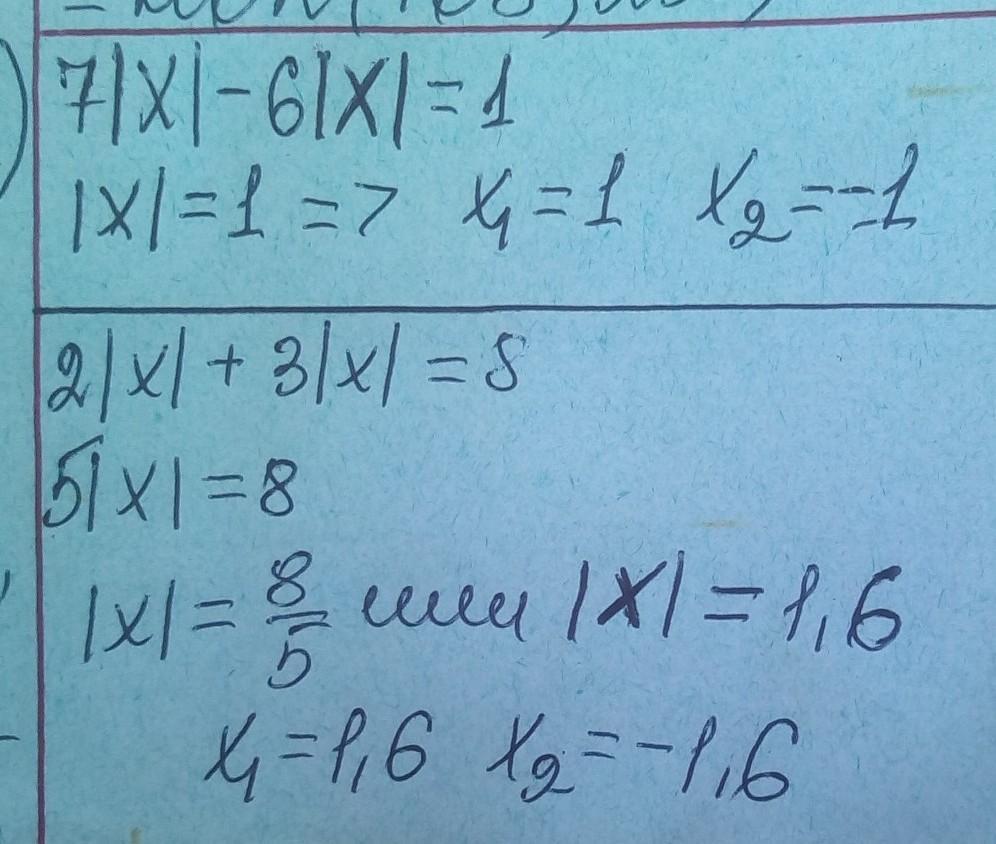 7|X| - 6|X| = 1
|X| = 1 => x₁ = 1 x₂ = -1
2|x| + 3|x| = 8
5|x| = 8
|x| = 8/5 или |X| = 1,6
x₁ = 1,6 x₂ = -1,6